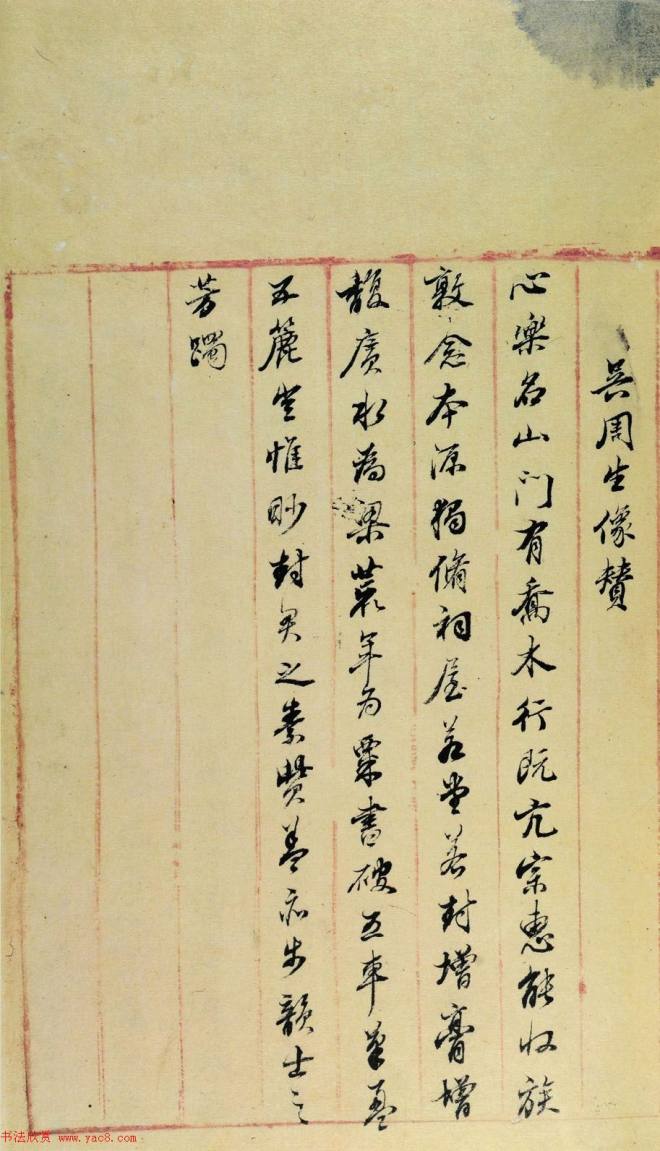 吳周生像贊
心樂名山門有喬木行既亢宗惠能收族
敦念本源獨脩祠屋若堂若封增膏增
馥廣水為梁蓑年為粟書破五車筆盈
五簏坐惟時封君之素贊蓋亦步韻士之
芳躅
书法欣赏 www.yac8.com